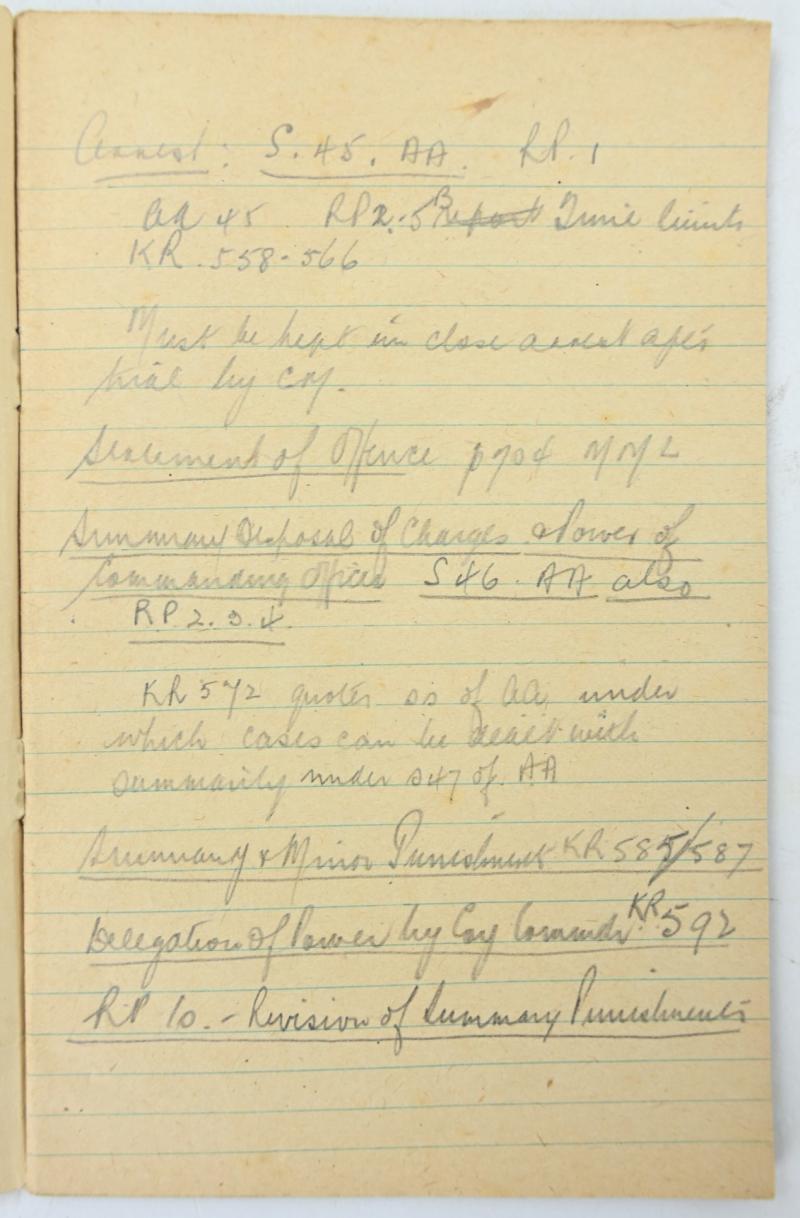 Arrest: S. 45. AA. RP. 1
AA 45 RP 2.-5 Report Time limits
KR. 558-566
Must be kept in close arrest after
trial by CM.
Statement of Offence p 704 MML
Summary Disposal of Charges & Power of
Commanding Officer S 46. AA also
RP 2. 3. 4.
KR 572 quotes ss of AA under
which cases can be dealt with
summarily under s47 of. AA
Summary & Minor Punishment KR 585/587
Delegation of Power by Coy Commdr KR. 592
RP 10. - Revision of Summary Punishments